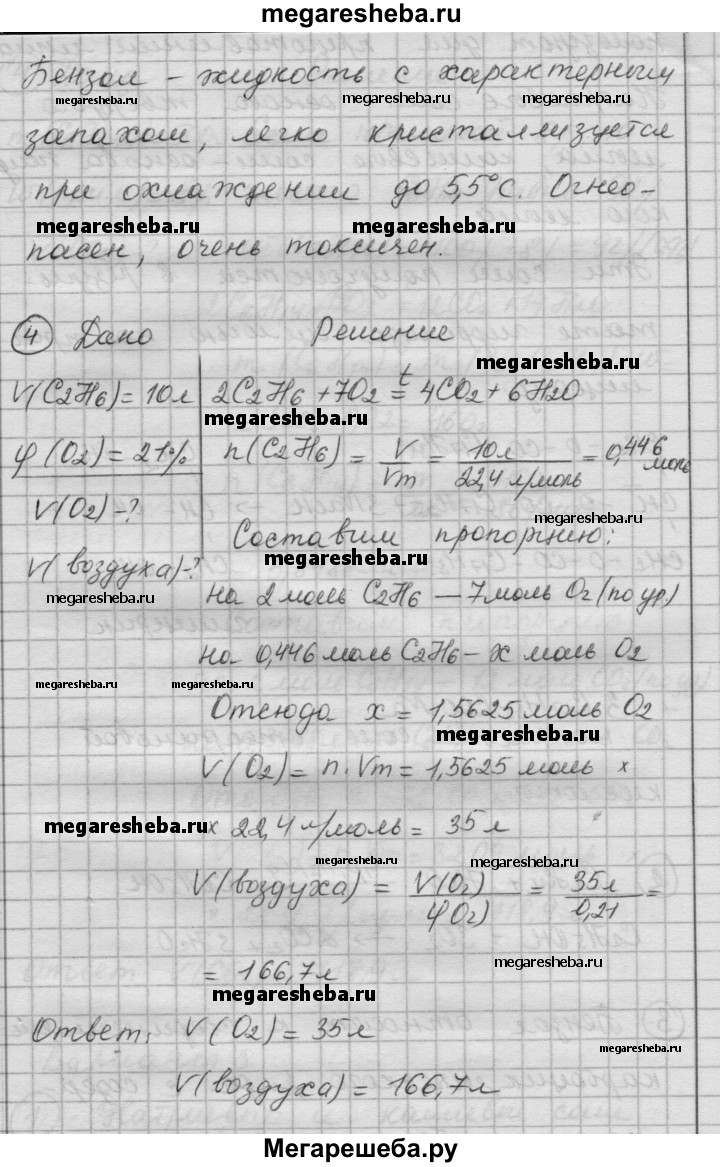 megaresheba.ru
Бензол - жидкость с характерным
megaresheba.ru megaresheba.ru megaresheba.ru
запахом, легко кристаллизуется
при охлаждении до 5,5°C. Огнео-
megaresheba.ru megaresheba.ru
пасен, очень токсичен.
4 Дано Решение
megaresheba.ru
V(C2H6) = 10л 2C2H6 + 7O2 =t 4CO2 + 6H2O
φ(O2) = 21% n(C2H6) = V/Vm = 10л/22,4 л/моль = 0,446 моль
V(O2) - ?
megaresheba.ru
Составим пропорцию:
megaresheba.ru
V(воздуха) - ?
megaresheba.ru
на 2 моль C2H6 — 7 моль O2 (по ур)
на 0,446 моль C2H6 - x моль O2
megaresheba.ru megaresheba.ru megaresheba.ru
Отсюда x = 1,5625 моль O2
megaresheba.ru
V(O2) = n · Vm = 1,5625 моль x
megaresheba.ru x 22,4 л/моль = 35 л
megaresheba.ru megaresheba.ru
V(воздуха) = V(O2)/φ(O2) = 35л/0,21 =
megaresheba.ru
= 166,7л
megaresheba.ru
Ответ: V(O2) = 35л
megaresheba.ru
V(воздуха) = 166,7л
Мегарешеба.ру